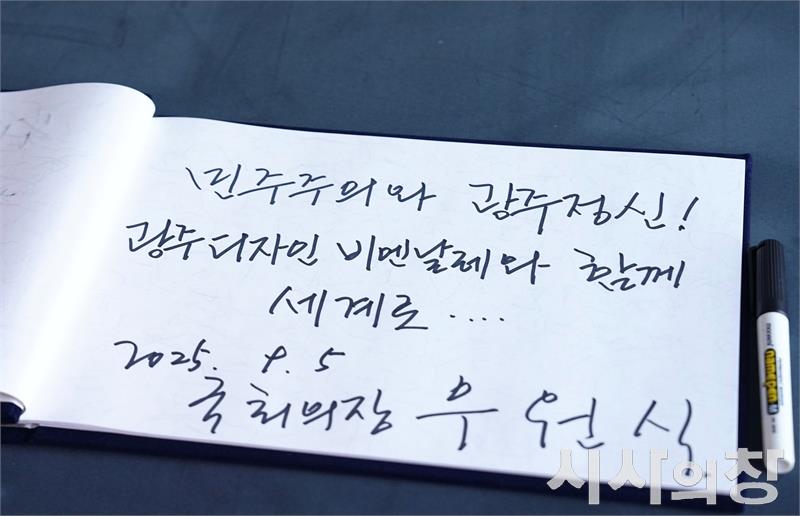 민주주의와 광주정신!
광주디자인 비엔날레와 함께
세계로....
2025. 9. 5
국회의장 우원식
namepen
시사의창